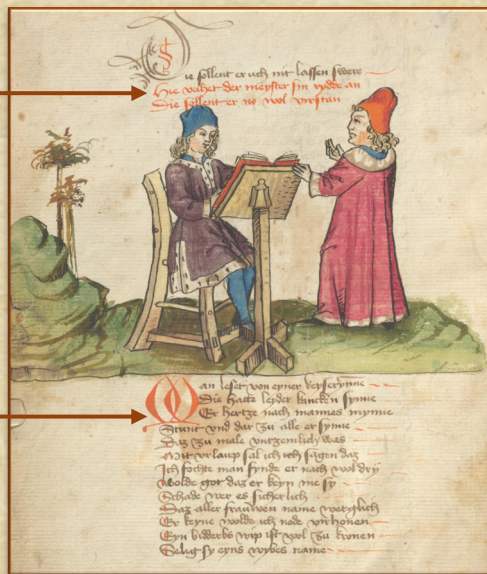 Die sollent er uch nit lassen swere
Hie vahet der meyster sin rydde an
Die sollent er no wol virstan
Man leset von eyner keyserynne
Die hatte leyder krancken synne
Er hertze nach mannes mynne
Stunt vnd dar zu alle er synne
Daz zu male vnzemlich was
Mit vrlaup sal ich uch sagen daz
Ich fochte man fynde er nach wol dry
Wolde got daz er keyn me sy
Schade wer es sicherlich
Daz aller frauwen name wet glich
Er keyne wolde ich node virhonen
Eyn bidderbs wip ist wol zu kronen
Selig sy eyns wybes name